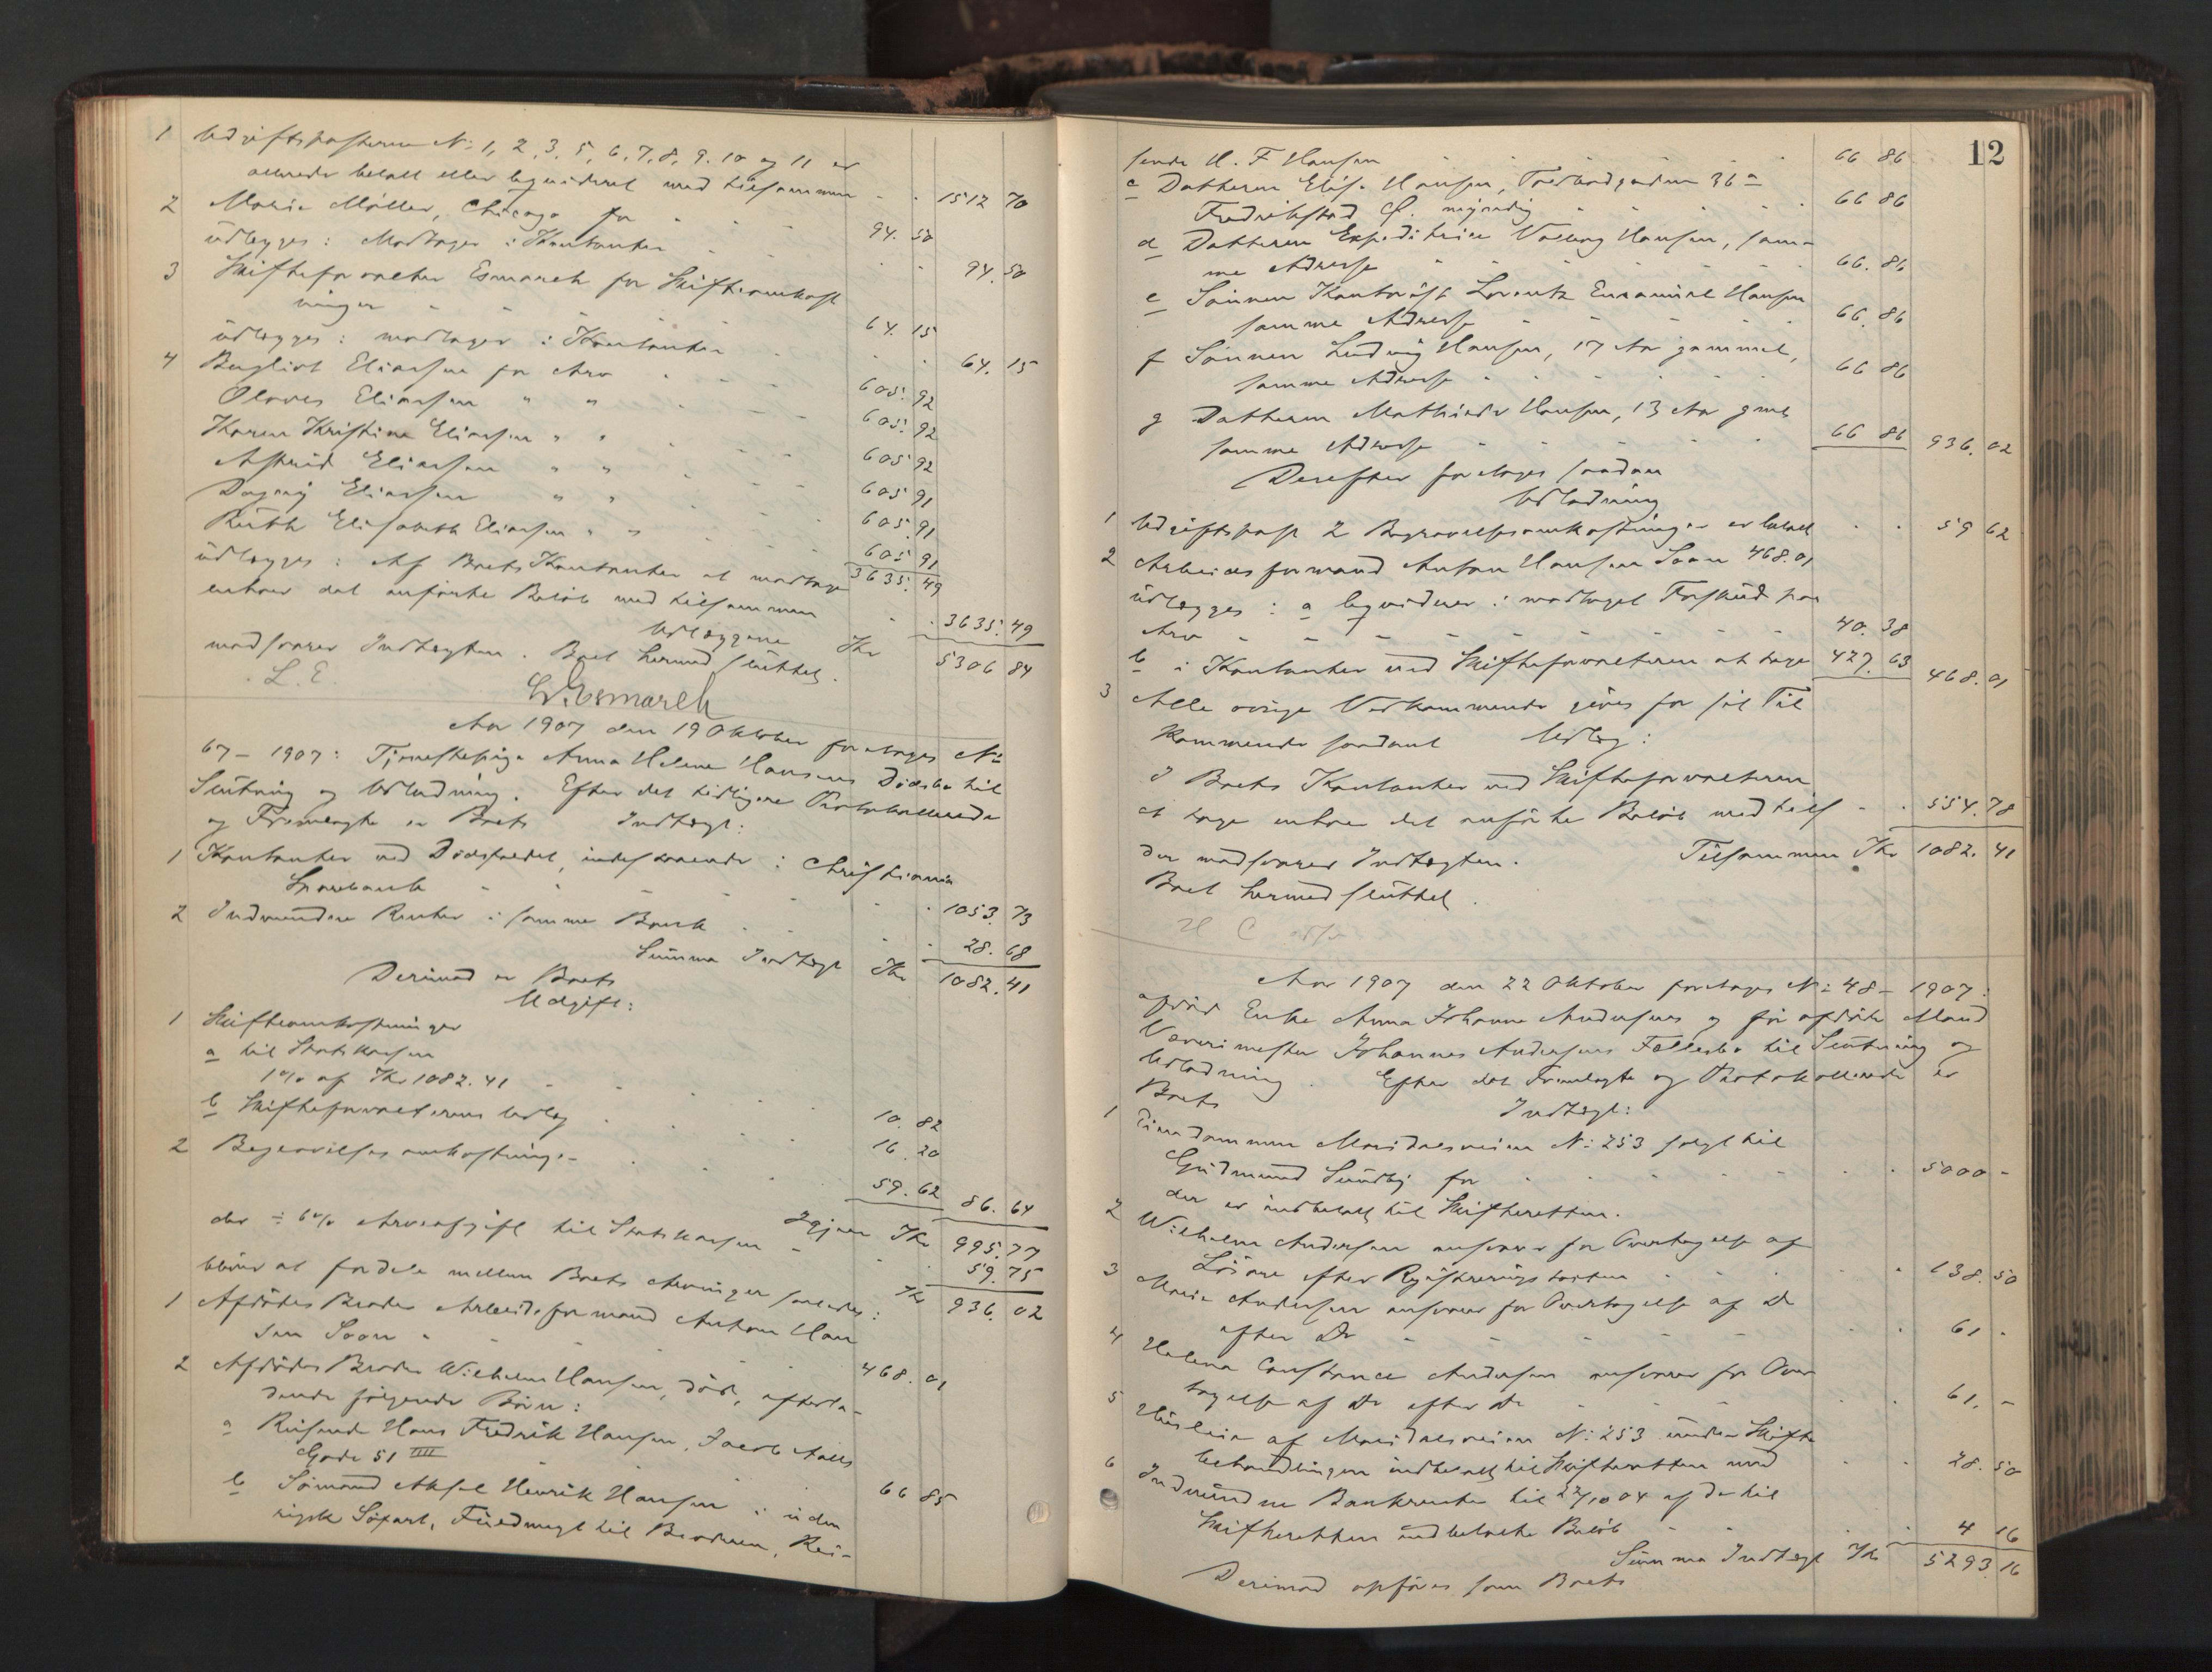 1 Udgiftsposterne No 1, 2, 3, 5, 6, 7, 8, 9, 10 og 11 er
allerede betalt eller liqvideret med tilsammen 1512 70
2 Marie Møller, Chicago for 94. 50
udlægges: Modtager i Kontanter 94. 50
3 Skifteforvalter Esmarch for Skifteomkost
ninger 64. 15
udlægges: modtager i Kontanter 64. 15
4 Bergliot Eliassen for Arv 605. 92
Oloves Eliassen " " 605. 92
Karen Kristine Eliassen " " 605 92
Astrid Eliassen " " 605 91
Dagny Eliassen " " 605 91
Ruth Elisabeth Eliassen " " 605 91
3635. 49
udlægges: Af Boets Kontanter at modtage
enhver det anførte Beløb med tilsammen 3635. 49
Udlæggene Kr 5306 84
modsvarer Indtægten. Boet hermed sluttet.
L. E.
W. Esmarch
Aar 1907 den 19 Oktober foretages No
67 – 1907: Tjenestepige Anna Helene Hansens Dødsbo til
Slutning og Udlodning. Efter det tidligere Protokollerede
og Fremlagte er Boets Indtægt:
1 Kontanter ved Dødsfaldet, indestaaende i Christiania
Sparebank 1053. 73
2 Indvundne Renter i samme Bank 28. 68
Summa Indtægt Kr 1082. 41
Derimod er Boets
Udgift:
1 Skifteomkostninger
a til Statskassen
1% af Kr 1082. 41 10. 82
b Skifteforvalterens Udlæg 16. 20
2 Begravelsesomkostninger 59. 62 86. 64
Igjen Kr 995. 77
der ÷ 6% Arveafgift til Statskassen 59. 75
bliver at fordele mellem Boets Arvinger saaledes: Kr 936. 02
1 Afdødes Broder Arbeidsformand Anton Han
sen Soon 468. 01
2 Afdødes Broder Wilhelm Hansen, død, efterla-
dende følgende Børn:
a Reisende Hans Fredrik Hansen, Jacob Aalls
Gade 51 IIII 66 85
b Sømand Aksel Henrik Hansen i uden
rigsk Søfart, Fuldmægt til Broderen, Rei-
12
sende H. F Hansen 66 86
c Datteren Elise Hansen, 36 a
Fredrikstad myndig 66 86
d Datteren Expeditrice Valborg Hansen, sam-
me Adresse 66. 86
e Sønnen Kontorist Lorentz Emanuel Hansen
samme Adresse 66. 86
f Sønnen Ludvig Hansen, 17 Aar gammel,
samme Adresse 66 86
g Datteren Mathilde Hansen, 13 Aar gml
samme Adresse 66 86 936. 02
Derefter foretages saadan
Udlodning
1 Udgiftspost 2 Begravelsesomkostninger er betalt 59 62
2 Arbeidsformand Anton Hansen Soon 468. 01
udlægges: a liqviderer i modtaget Forskud paa
Arv 40. 38
b i Kontanter ved Skifteforvalteren at tage 427. 63 468. 01
3 Alle øvrige Vedkommende gives for sit Til
kommende saadant Udlæg:
I Boets Kontanter ved Skifteforvalteren
at tage enhver det anførte Beløb med tils 554. 78
Tilsammen Kr 1082. 41
der modsvarer Indtægten.
Boet hermed sluttet.
Aar 1907 den 22 Oktober foretages No 48 – 1907:
afdød Enke Anna Johanne Andersens og før afdøde Mand
Væverimester Johannes Andersens Fællesbo til Slutning og
Udlodning. Efter det Fremlagte og Protokollerede er
Boets Indtægt:
1 Eiendommen Maridalsveien No 253 solgt til
Gudmund Sundby for 5000 -
der er indbetalt til Skifteretten.
2 Wilhelm Andersen ansvarer for Overtagelse af
Løsøre efter Registreringstaxten 138. 50
3 Marie Andersen ansvarer for Overtagelse af Do
efter Do 61 -
4 Helena Constance Andersen ansvarer for Over
tagelse af Do efter Do 61. -
5 Husleie af Maridalsveien No 253 under Skifte
behandlingen indbetalt til Skifteretten med 28. 50
6 Indvundne Bankrenter til 22/10 07 af de til
Skifteretten indbetalte Beløb 4 16
Summa Indtægt Kr 5293. 16
Derimod opføres som Boets